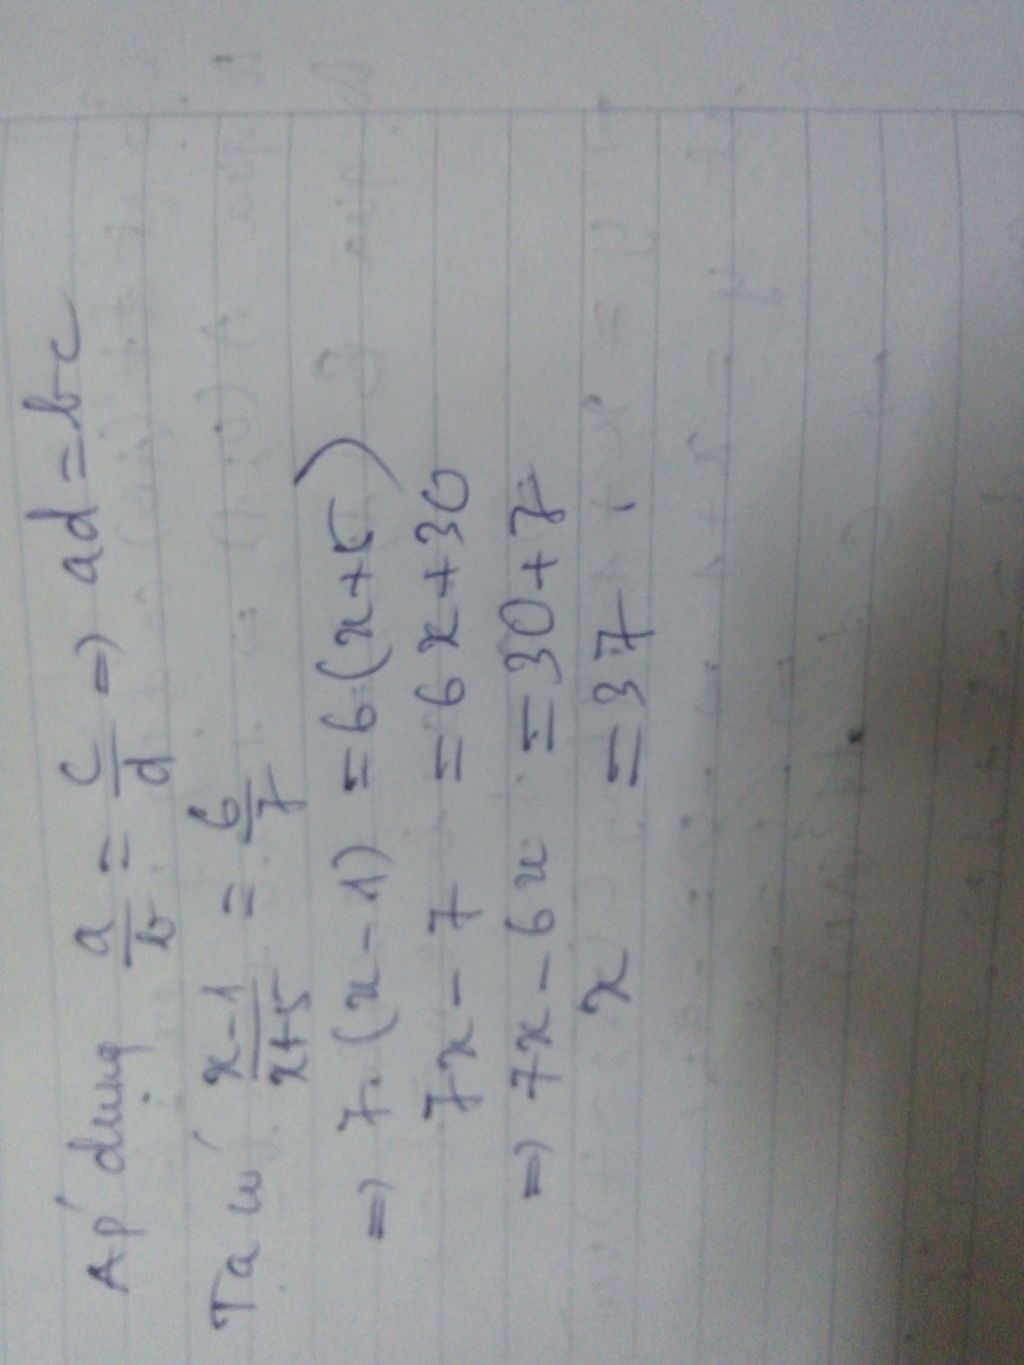 Áp dụng a/b = c/d => ad = bc
Ta có x-1/x+5 = 6/7
=> 7.(x-1) = 6.(x+5)
7x - 7 = 6x + 30
=> 7x - 6x = 30 + 7
x = 37